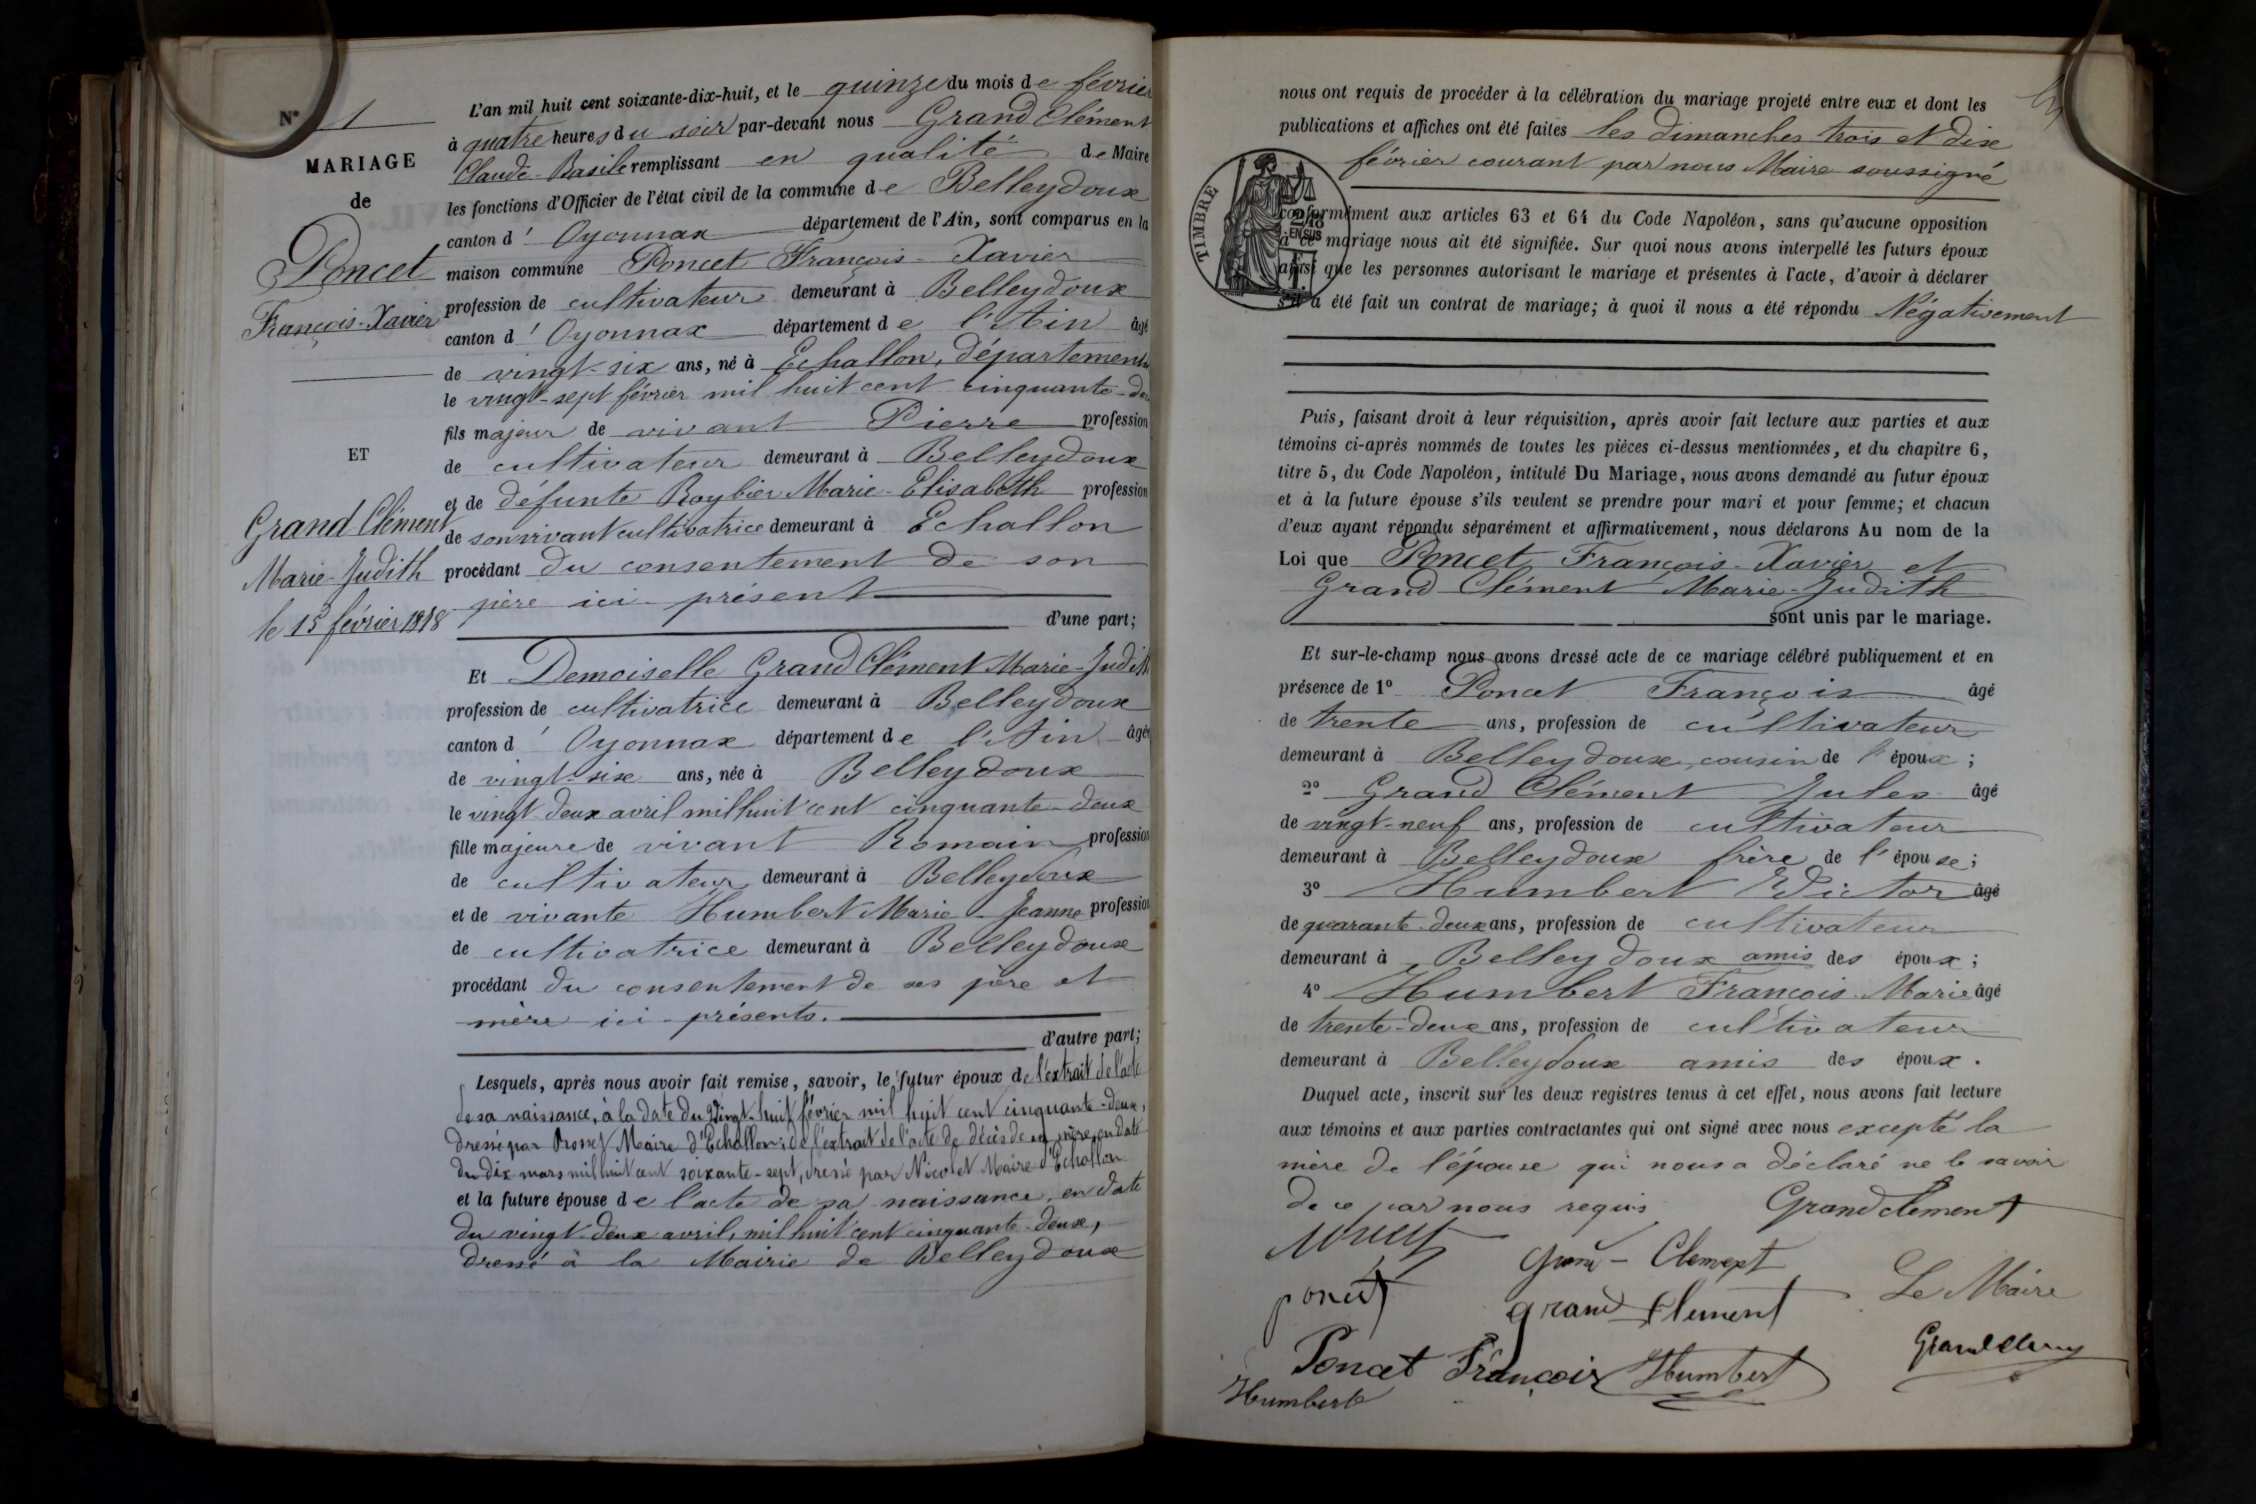 N° 1
MARIAGE
de
Poncet
François-Xavier
ET
Grand Clément
Marie-Judith
le 15 février 1878
L'an mil huit cent soixante-dix-huit, et le quinze du mois de février
à quatre heures du soir par-devant nous Grand Clément
Claude-Basile remplissant en qualité de Maire
les fonctions d'Officier de l'état civil de la commune de Belleydoux
canton d'Oyonnax département de l'Ain, sont comparus en la
maison commune Poncet François-Xavier
profession de cultivateur demeurant à Belleydoux
canton d'Oyonnax département de l'Ain âgé
de vingt-six ans, né à Echallon, département
le vingt-sept février mil huit cent cinquante-deux
fils majeur de vivant Pierre profession
de cultivateur demeurant à Belleydoux
et de défunte Roybier Marie-Elisabeth profession
de son vivant cultivatrice demeurant à Echallon
procédant du consentement de son
père ici présent
d'une part;
Et Demoiselle Grand Clément Marie-Judith
profession de cultivatrice demeurant à Belleydoux
canton d'Oyonnax département de l'Ain âgée
de vingt-six ans, née à Belleydoux
le vingt deux avril mil huit cent cinquante-deux
fille majeure de vivant Romain profession
de cultivateur demeurant à Belleydoux
et de vivante Humbert Marie-Jeanne profession
de cultivatrice demeurant à Belleydoux
procédant du consentement de ses père et
mère ici présents.
d'autre part;
Lesquels, après nous avoir fait remise, savoir, le futur époux de l'extrait de l'acte
de sa naissance, à la date du vingt-huit février mil huit cent cinquante-deux,
dressé par Maire d'Echallon; de l'extrait de l'acte de décès de sa mère, en date
du dix mars mil huit cent soixante-sept, dressé par Nicolet Maire d'Echallon
et la future épouse de l'acte de sa naissance, en date
du vingt-deux avril, mil huit cent cinquante-deux,
dressé à la Mairie de Belleydoux
nous ont requis de procéder à la célébration du mariage projeté entre eux et dont les
publications et affiches ont été faites les dimanches trois et dix
février courant par nous Maire soussigné
TIMBRE
2/10
EN SUS
conformément aux articles 63 et 64 du Code Napoléon, sans qu'aucune opposition
à ce mariage nous ait été signifiée. Sur quoi nous avons interpellé les futurs époux
ainsi que les personnes autorisant le mariage et présentes à l'acte, d'avoir à déclarer
s'il a été fait un contrat de mariage; à quoi il nous a été répondu Négativement
Puis, faisant droit à leur réquisition, après avoir fait lecture aux parties et aux
témoins ci-après nommés de toutes les pièces ci-dessus mentionnées, et du chapitre 6,
titre 5, du Code Napoléon, intitulé Du Mariage, nous avons demandé au futur époux
et à la future épouse s'ils veulent se prendre pour mari et pour femme; et chacun
d'eux ayant répondu séparément et affirmativement, nous déclarons Au nom de la
Loi que Poncet François-Xavier et
Grand Clément Marie-Judith
sont unis par le mariage.
Et sur-le-champ nous avons dressé acte de ce mariage célébré publiquement et en
présence de 1° Poncet François âgé
de trente ans, profession de cultivateur
demeurant à Belleydoux, cousin de l'époux;
2° Grand Clément Jules âgé
de vingt-neuf ans, profession de cultivateur
demeurant à Belleydoux frère de l'épouse;
3° Humbert Victor âgé
de quarante-deux ans, profession de cultivateur
demeurant à Belleydoux amis des époux;
4° Humbert François-Marie âgé
de trente-deux ans, profession de cultivateur
demeurant à Belleydoux amis des époux.
Duquel acte, inscrit sur les deux registres tenus à cet effet, nous avons fait lecture
aux témoins et aux parties contractantes qui ont signé avec nous excepté la
mère de l'épouse qui nous a déclaré ne le savoir
de ce par nous requis Grandclement
poncet
gran - Clement
poncet
grand Clement
Le Maire
Poncet François Humbert
Humbert